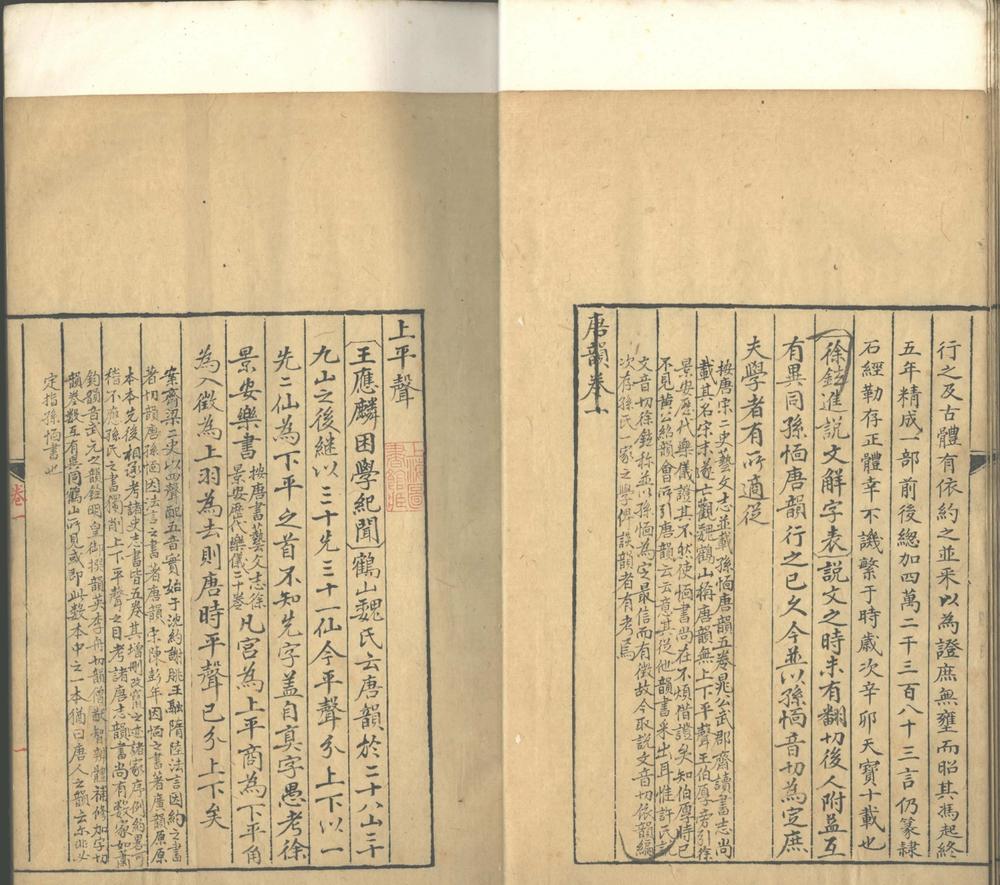 行之及古體有依約之並采以為證庶無壅而昭其馮起終
五年精成一部前後緫加四萬二千三百八十三言仍篆隸
石經勒存正體幸不譏繫于時歲次辛卯天寶十載也
徐鉉進說文解字表說文之時未有翻切後人附益互
有異同孫愐唐韻行之已久今並以孫愐音切為定庶
夫學者有所適從
按唐宋二史藝文志並載孫愐唐韻五卷晁公武郡齋讀書志尚
載其名宋末遂亡觀魏鶴山稱唐韻無上下平聲王伯厚旁引徐
景安歷代樂儀證其不然使愐書尚在不煩偕證矣知伯厚時已
不見黃公紹韻會所引唐韻云云意其從他韻書采出耳惟許氏說
文音切徐鉉称並以孫愐為定最信而有徵故今取說文音切依韻編
次存孫氏一家之學俾談韻者有考焉
唐韻卷
上平聲
王應麟困學紀聞鶴山魏氏云唐韻於二十八山三十
九山之後継以三十先三十一仙今平聲分上下以一
先二仙為下平之首不知先字盖自真字愚考徐
景安樂書
按唐書藝文志徐
景安歷代樂儀三十卷
凡宮為上平商為下平角
為入徵為上羽為去則唐時平聲已分上下矣
案齊梁二史以四聲配五音實始于沈約謝朓王融隋陸法言因約之書
著切韻唐孫愐因法言之書著唐韻宋陳彭年因愐之書著廣韻原原
本本先後相承考諸史志書皆五卷其增刪改竄之迹諸家序例約畧可
稽不應孫氏之書獨削上下平聲之目考諸唐志韻書尚有数家如蕭
鈞韻音武元之韻銓明皇御撰韻英李舟切韻僧猷智辨體補修加字切
韻卷数互有異同鶴山所見或即此数本中之一本猶曰唐人之韻云尒非必
定指孫愐書也
卷一
一